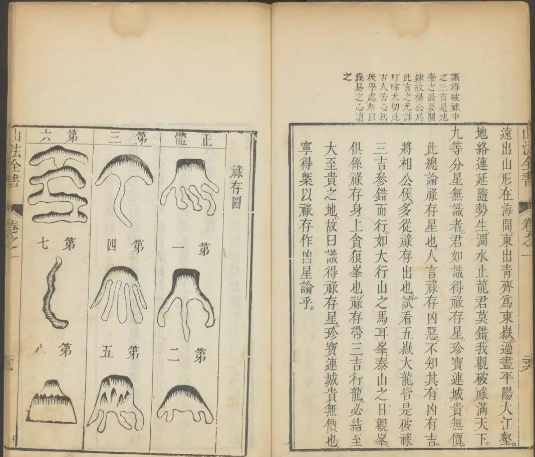 識得破祿中
之三吉是地
學之最要關
鍵故楊公於
此言之尤詳
叮嚀尤切此
古人苦心爲
後學處勿負
之
山法全書
卷之一
遠出山形在海間東出青齊爲東嶽過盡平陽大江壑
地絡連延隨勢生澗水止龍君莫錯我觀破祿滿天下
九等分星無識者君如識得祿存星珍寶連城貴無價
此總論祿存星也人言祿存凶惡不知其有凶有吉
將相公侯多從祿存出也試看五嶽大龍皆是破祿
三吉參錯而行如大行山之馬耳峯泰山之日觀峯
俱係祿存身上貪狼峯也祿存帶三吉行龍必結至
大至貴之地故曰識得祿存星珍寶連城貴無價也
寧得槩以祿存作凶星論乎
祿存圖
正體
第一
第二
第三
第四
第五
第六
第七
第八
山法全書
卷之一